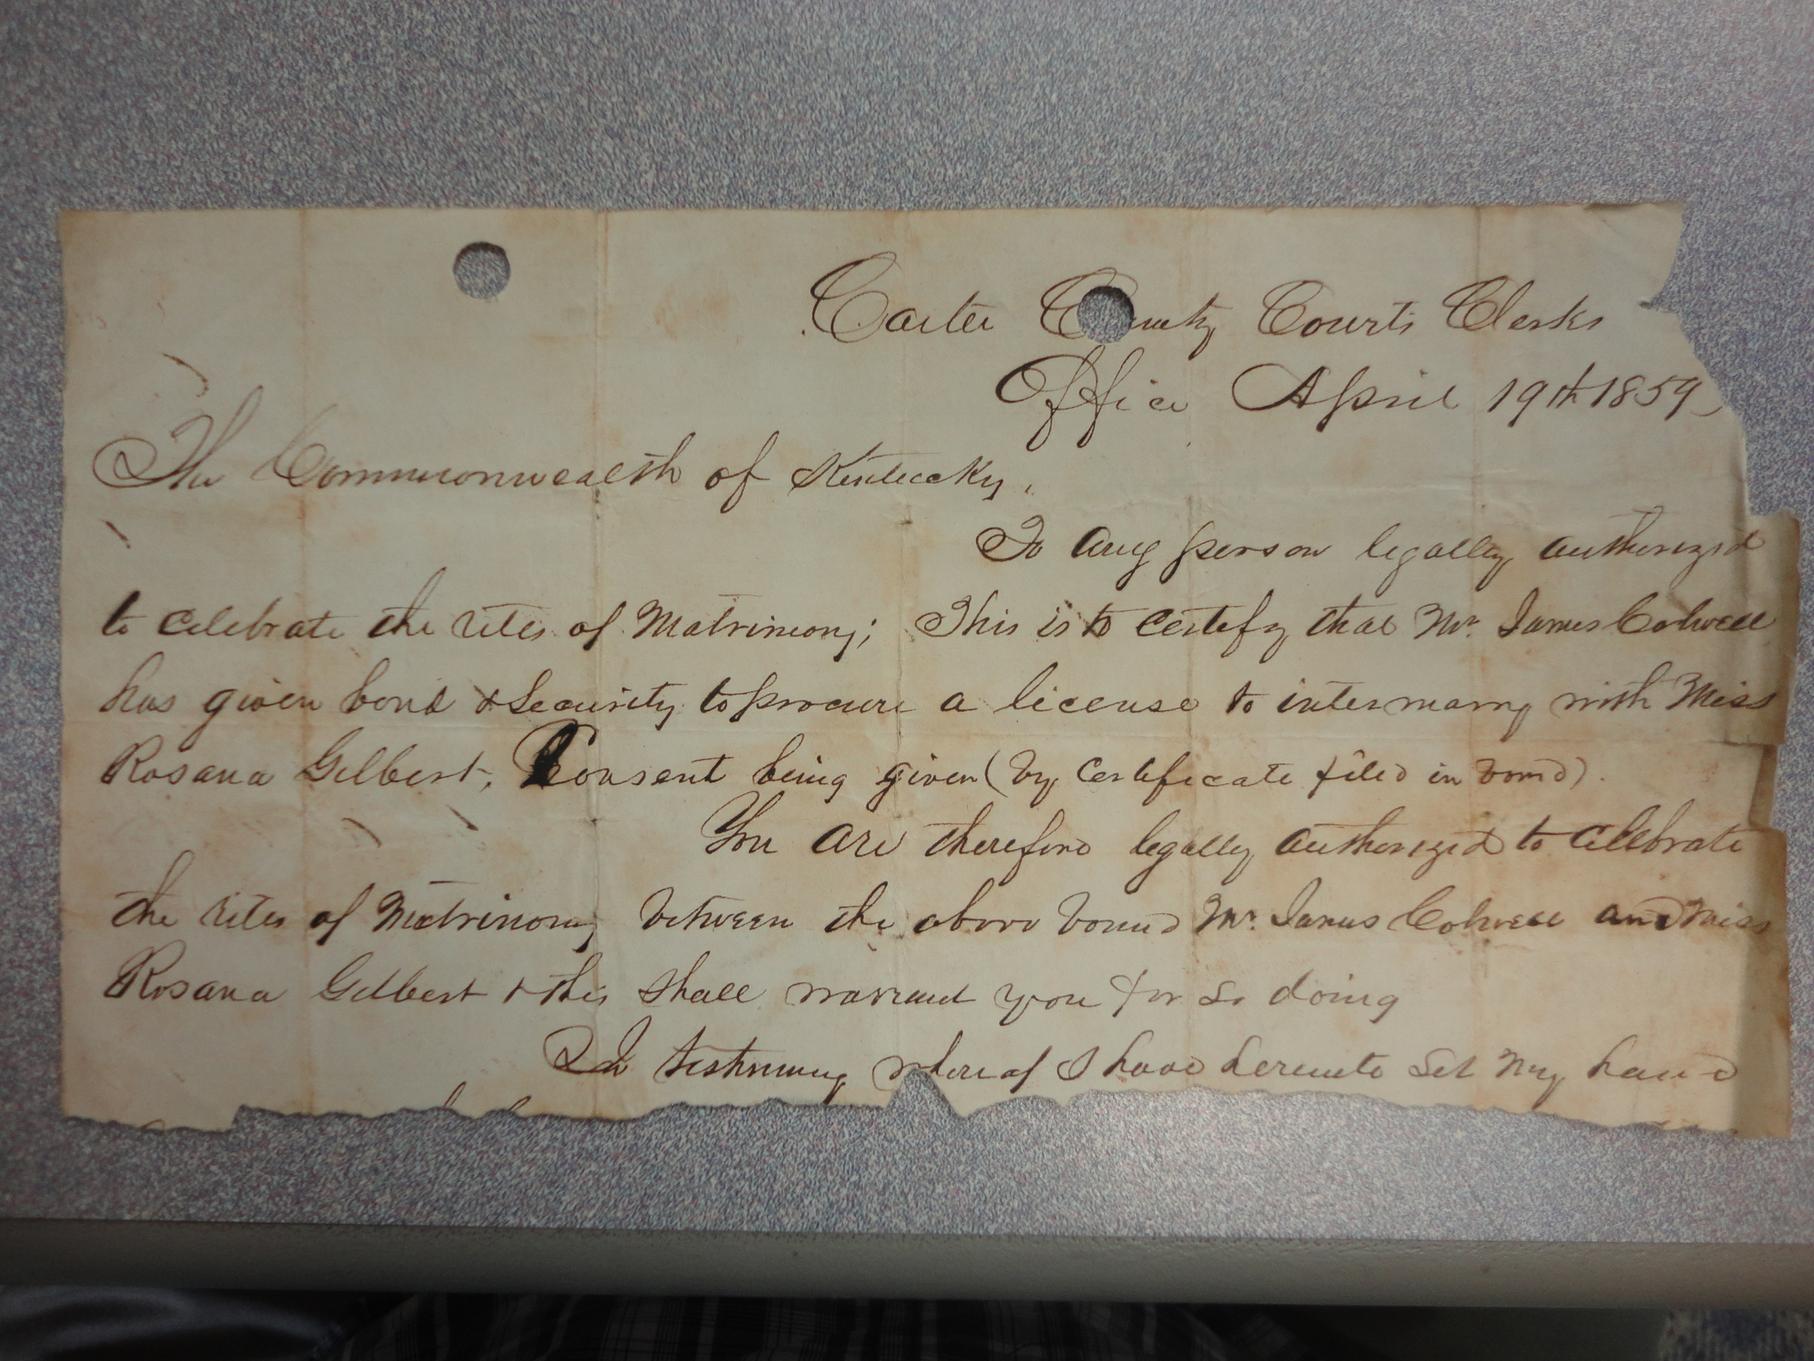 Carter County Courts Clerks
Office April 19th 1859
The Commonwealth of Kentucky.
To any person legally authorized
to celebrate the rites of Matrimony; This is to certify that Mr. James Colwell
has given bond & Security to procure a license to intermarry with Miss
Rosana Gilbert, Consent being given (by Certificate filed in bond).
You are therefore legally authorized to celebrate
the rites of Matrimony between the above bound Mr. James Colwell and Miss
Rosana Gilbert & this shall warrant you for so doing
In testimony whereof I have hereunto Set my hand